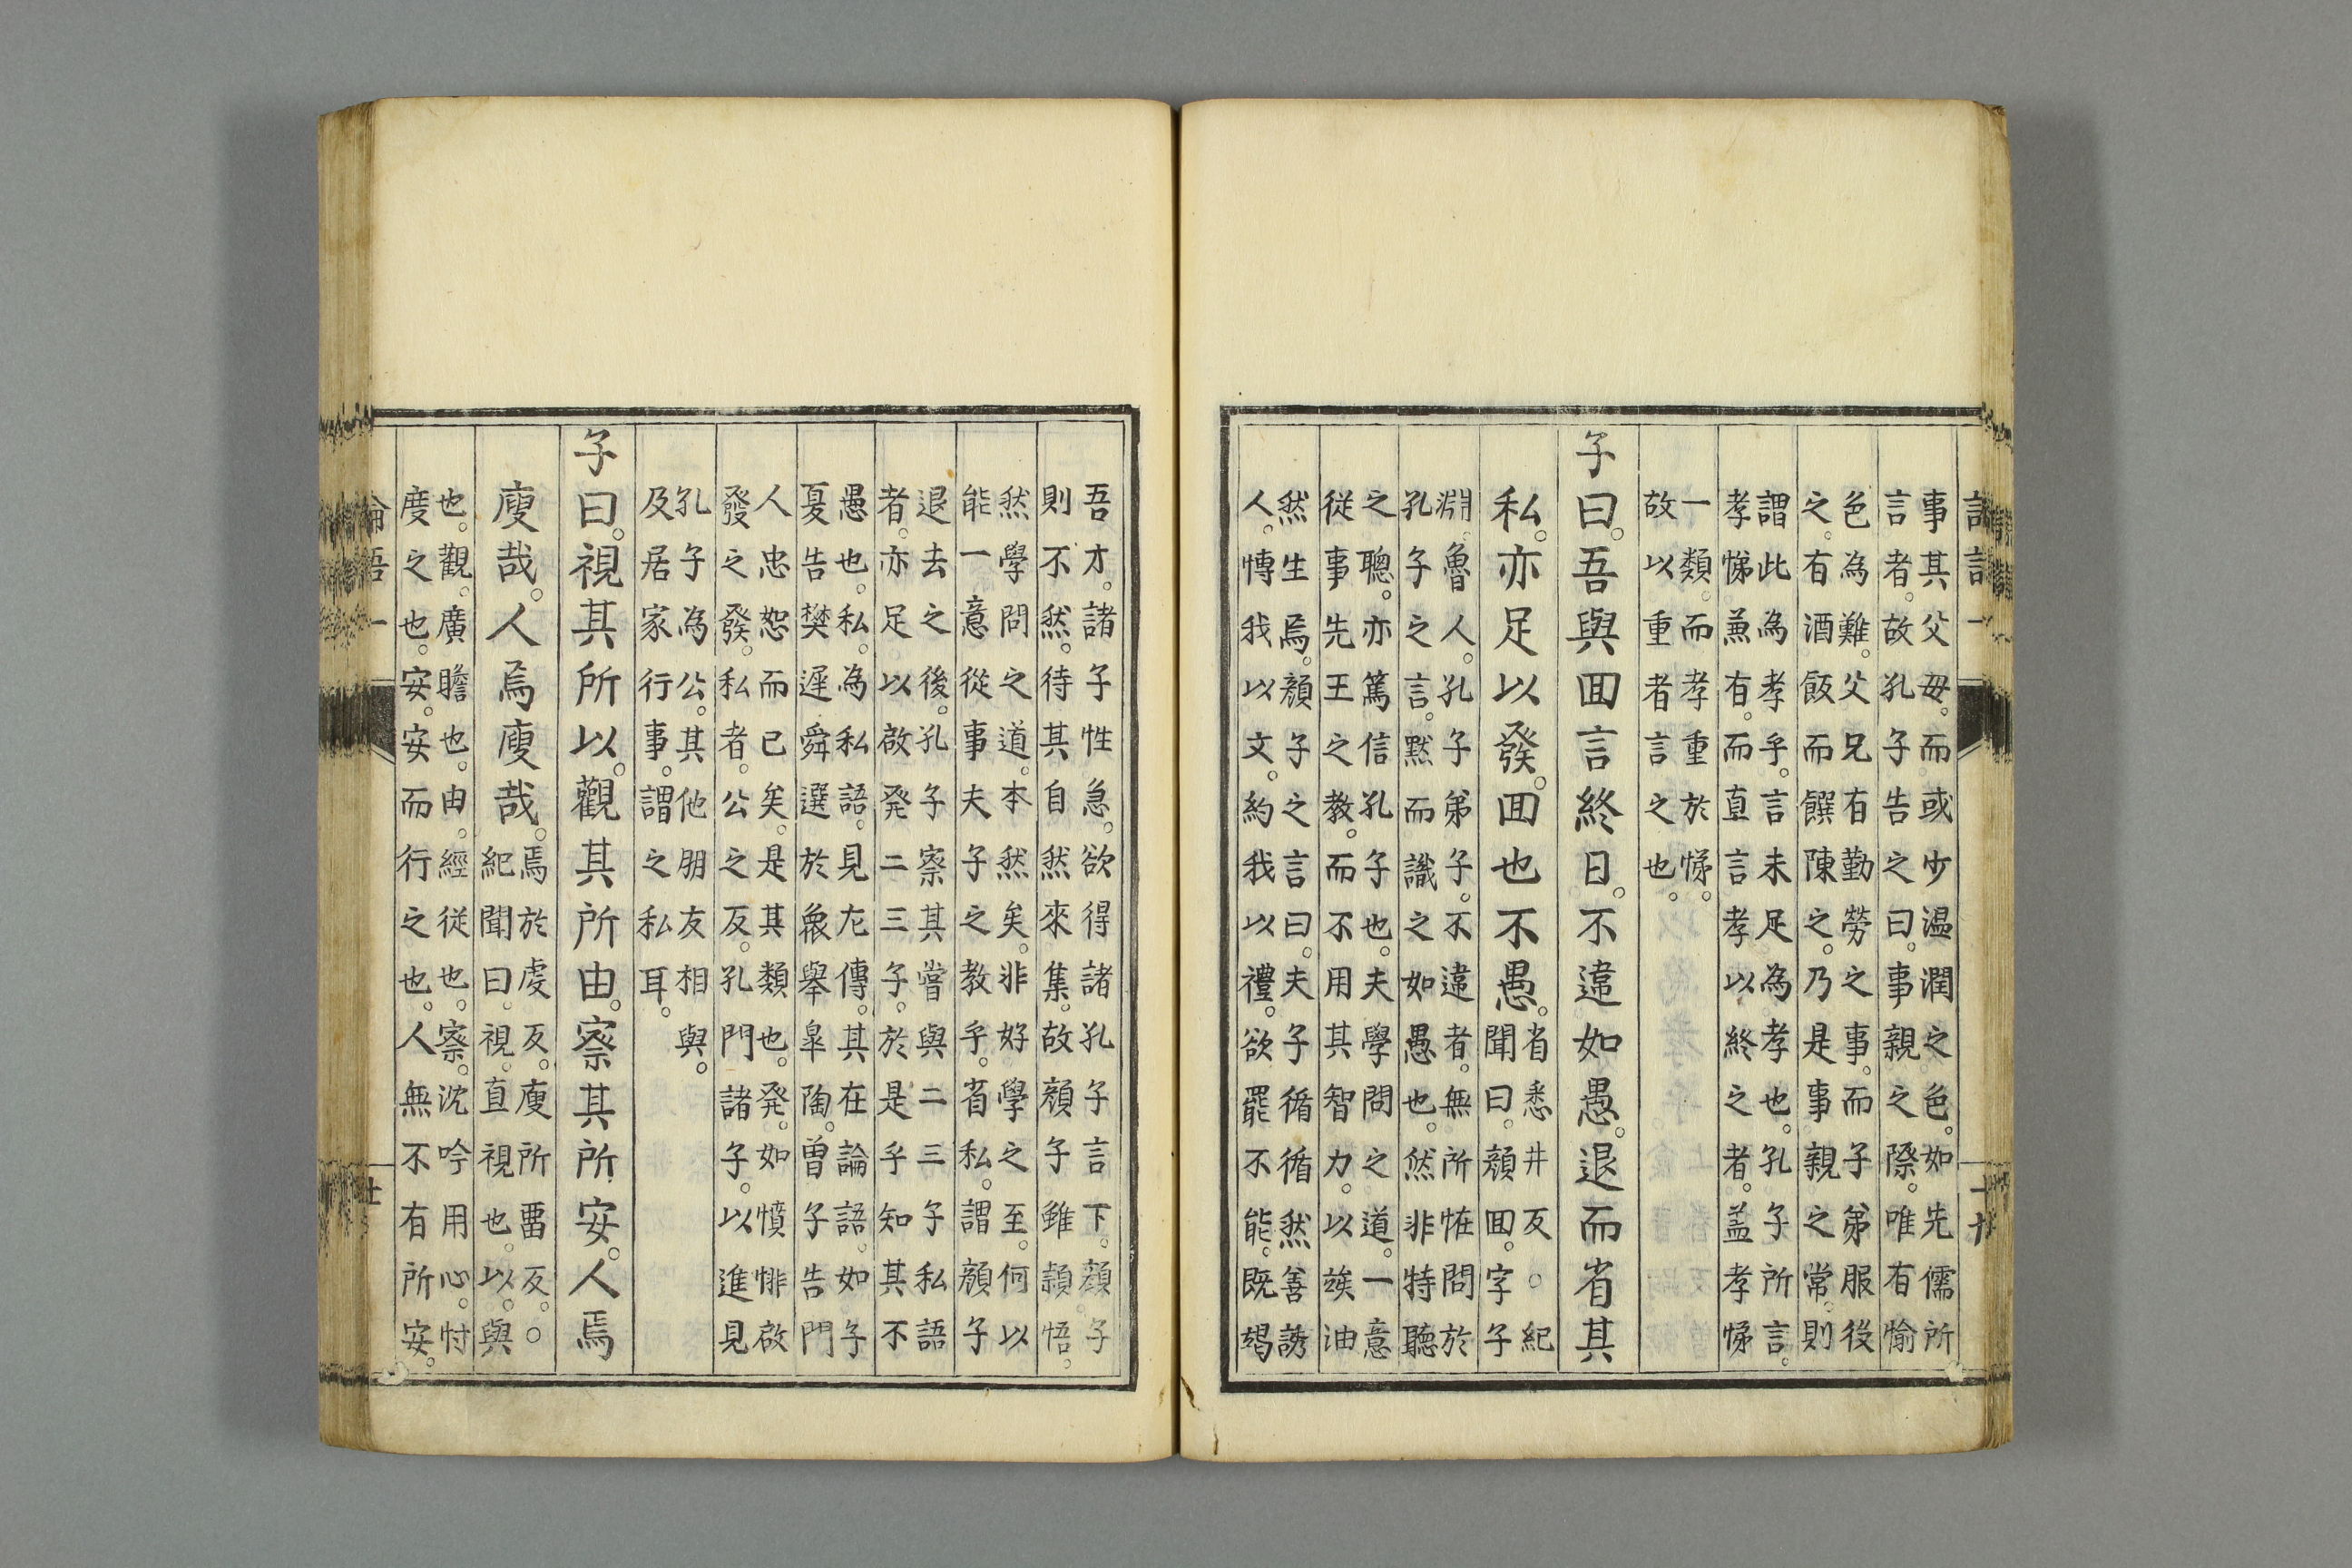 事其父母。而或少温潤之色。如先儒所
言者。故孔子告之曰。事親之際。唯有愉
色為難。父兄有勤勞之事。而子弟服後
之。有酒飯而饌陳之。乃是事親之常。則
謂此為孝乎。言未足為孝也。孔子所言。
孝悌兼有。而直言孝以終之者。盖孝悌
一類。而孝重於悌。
故以重者言之也。
子曰。吾與回言終日。不違如愚。退而省其
私。亦足以發。回也不愚。
省悉井反。紀
聞曰。顔回。字子
淵。魯人。孔子弟子。不違者。無所恠問於
孔子之言。黙而識之如愚也。然非特聽
之聰。亦篤信孔子也。夫學問之道。一意
従事先王之教。而不用其智力。以竢油
然生焉。顔子之言曰。夫子循循然善誘
人。博我以文。約我以禮。欲罷不能。既竭
吾才。諸子性急。欲得諸孔子言下。顔子
則不然。待其自然來集。故顔子雖頴悟。
然學問之道。本然矣。非好學之至。何以
能一意從事夫子之教乎。省私。謂顔子
退去之後。孔子察其嘗與二三子私語
者。亦足以啟発二三子。於是乎知其不
愚也。私。為私語。見左傳。其在論語。如子
夏告樊遲舜選於衆舉皐陶。曽子告門
人忠恕而已矣。是其類也。発。如憤悱啟
發之發。私者。公之反。孔門諸子。以進見
孔子為公。其他朋友相與。
及居家行事。謂之私耳。
子曰。視其所以。觀其所由。察其所安。人焉
廋哉。人焉廋哉。
焉於虔反。廋所畱反。
紀聞曰。視。直視也。以。與
也。觀。廣瞻也。由。經従也。察。沈吟用心。忖
度之也。安。安而行之也。人無不有所安。